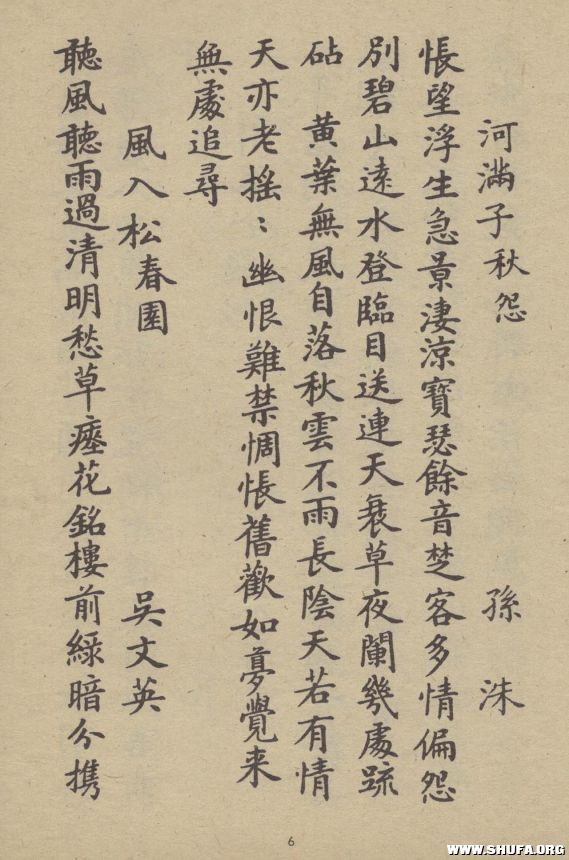 河滿子秋怨 孫洙
悵望浮生急景淒涼寶瑟餘音楚客多情偏怨
別碧山遠水登臨目送連天衰草夜闌幾處疏
砧 黃葉無風自落秋雲不雨長陰天若有情
天亦老搖〻幽恨難禁惆悵舊歡如夢覺来
無處追尋
風入松春園 吳文英
聽風聽雨過清明愁草瘞花銘樓前綠暗分携
6
WWW.SHUFA.ORG